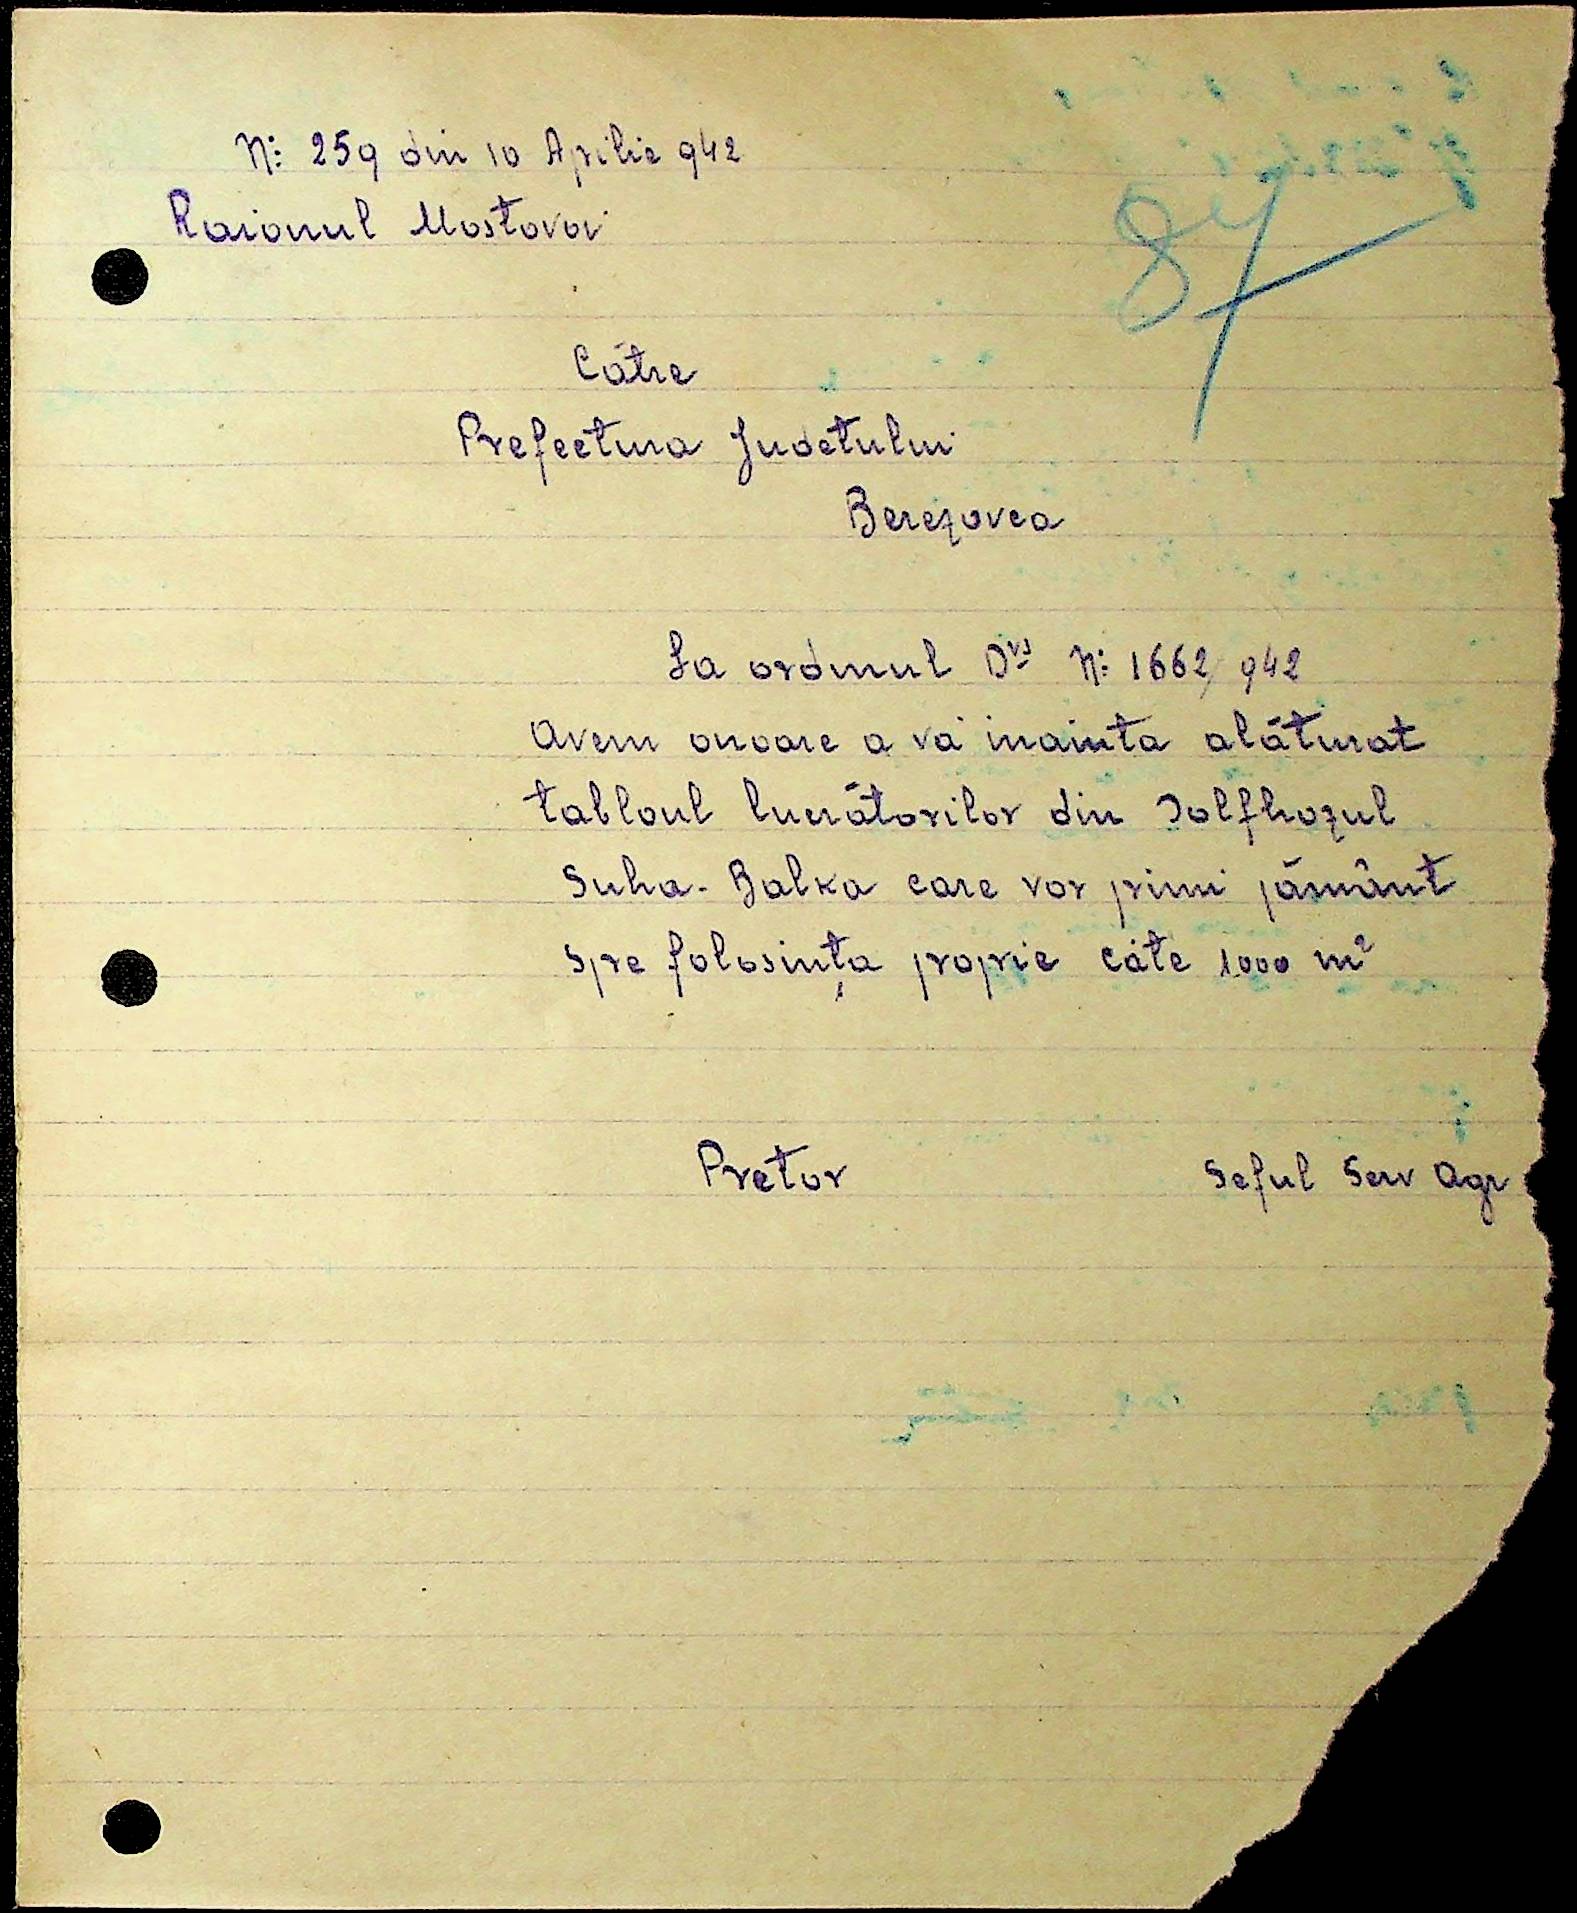 N: 259 din 10 Aprilie 942
Raionul Mostovoi
87
Către
Prefectura Judetului
Berezovca
La ordinul Dvs N: 1662/942
Avem onoare a vă inainta alăturat
tabloul lucrătorilor din Solfhozul
Suha-Balka care vor primi pământ
spre folosința proprie câte 1000 m²
Pretor Seful Serv Agr